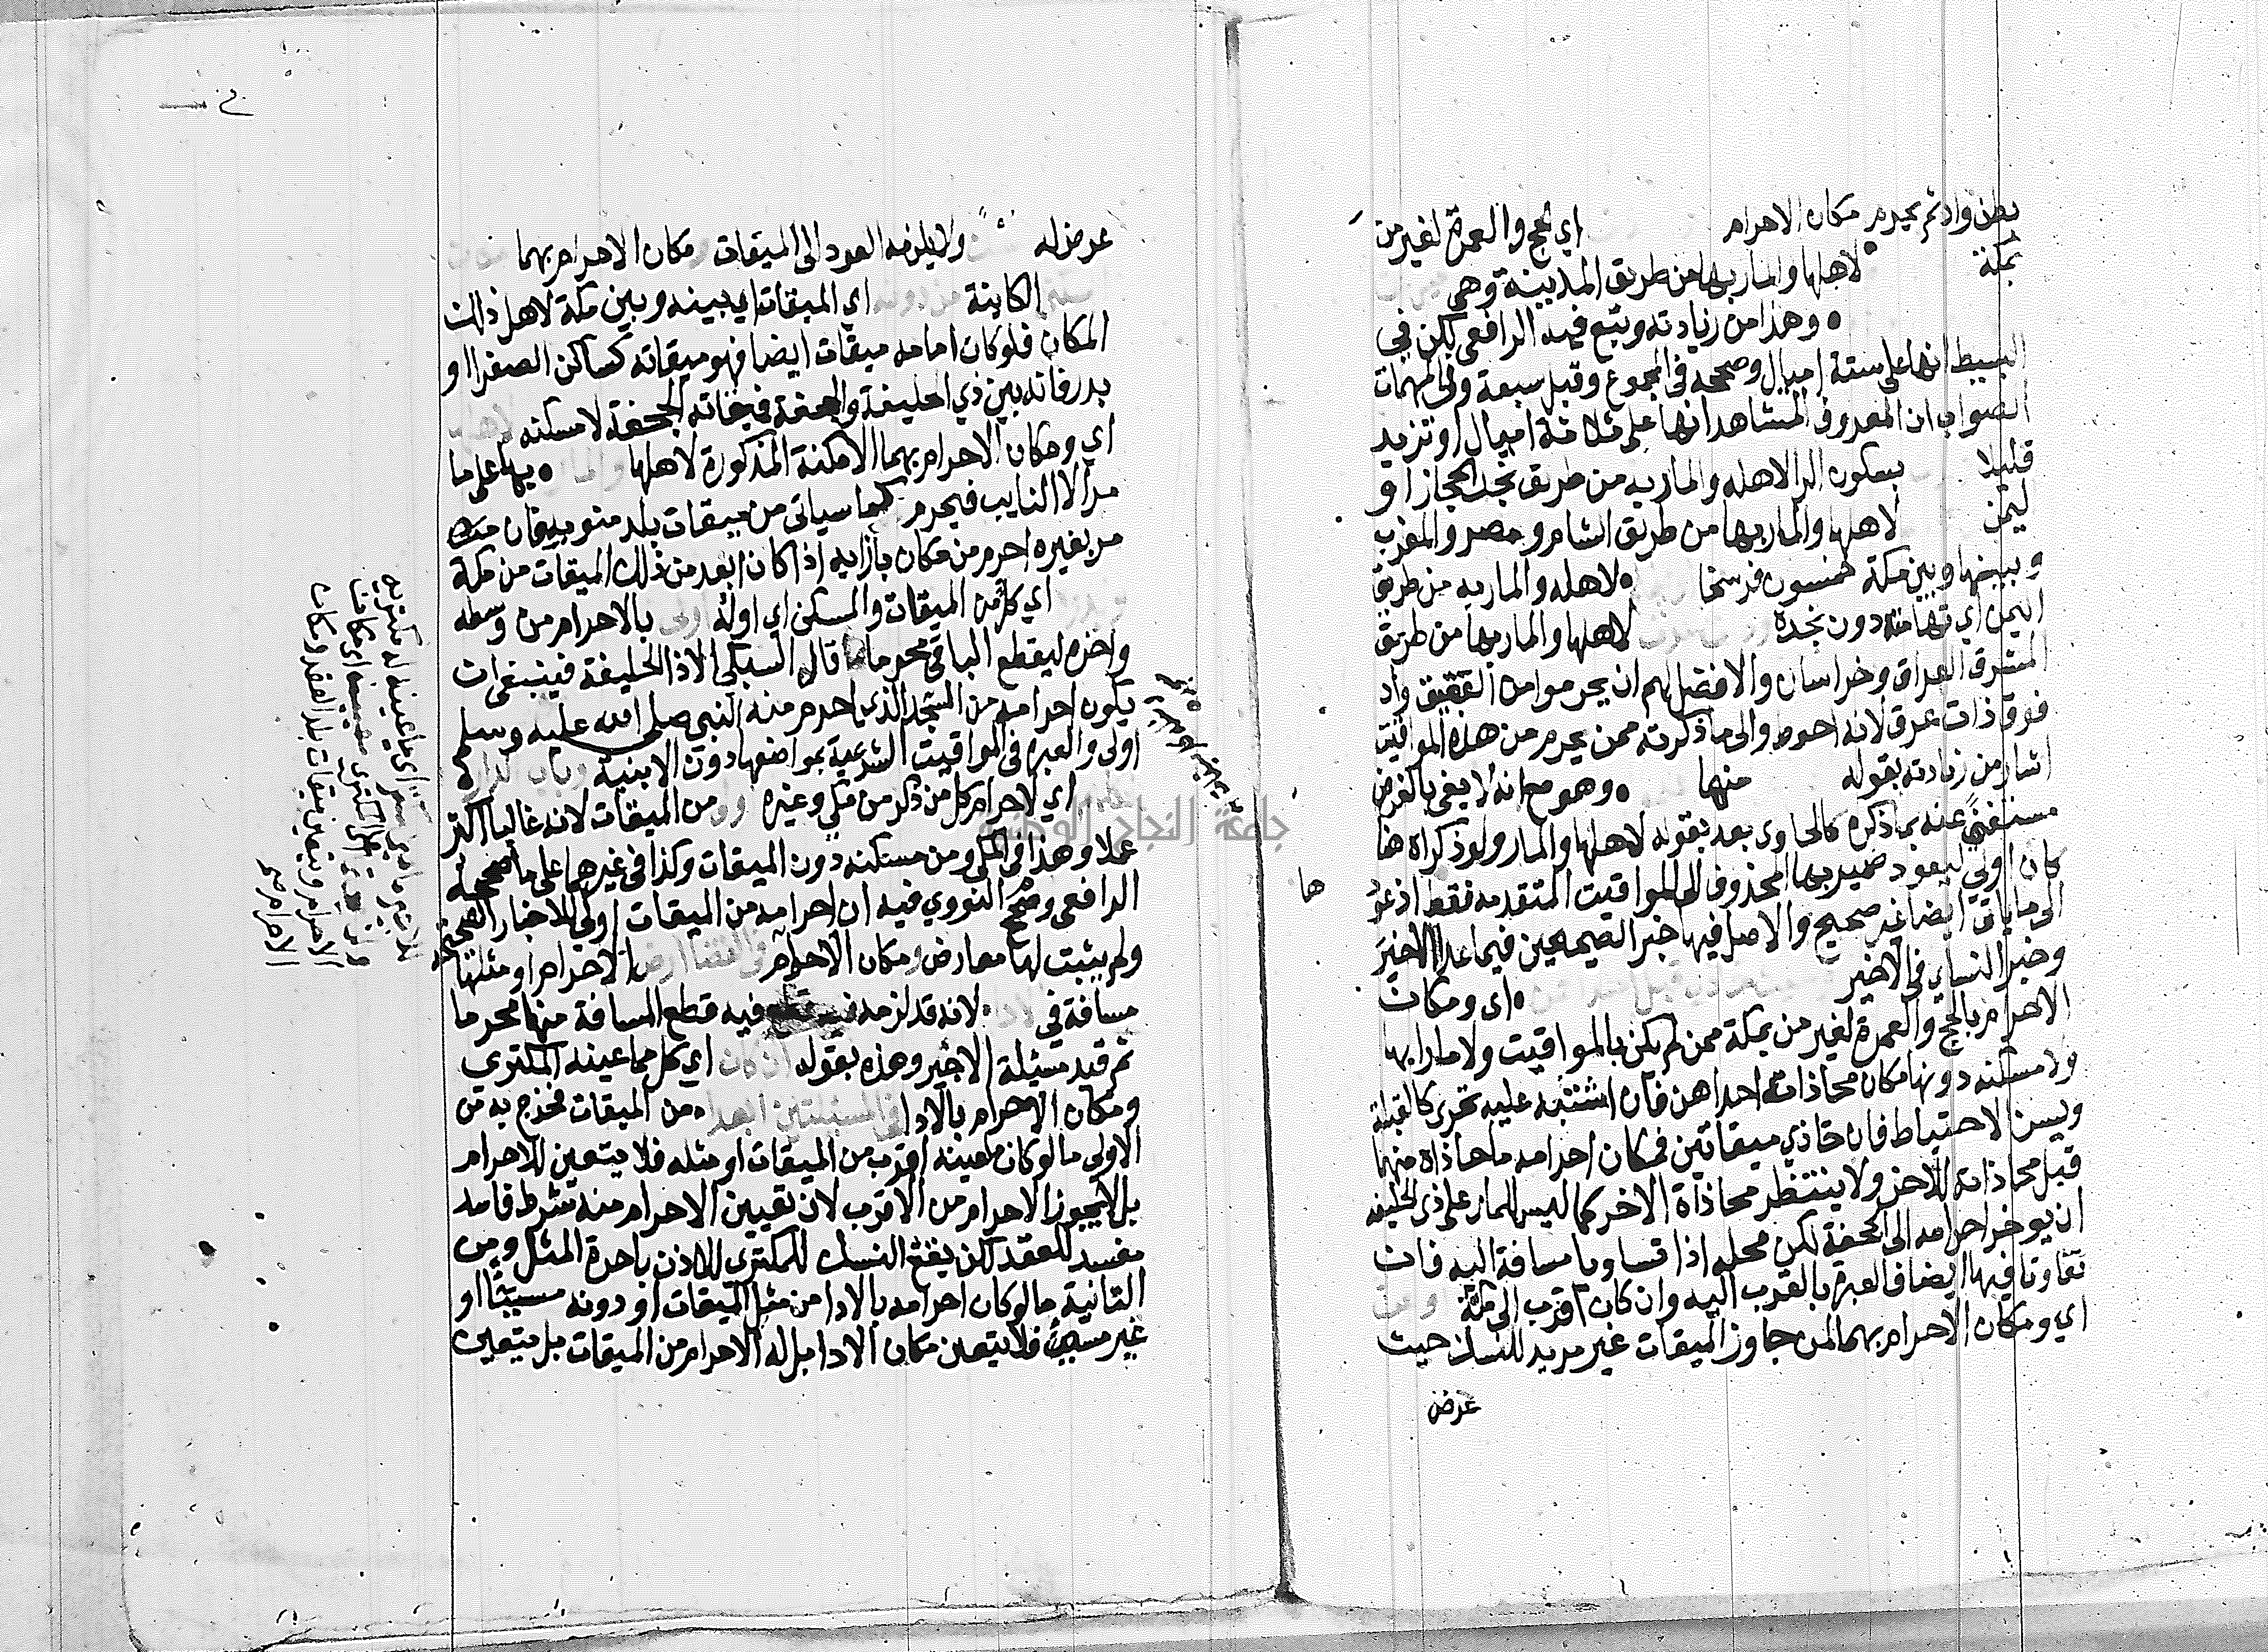 بطن واد ثم يحرم مكان الاحرام اي بحج والعمرة لغير من
بمكة لاهلها والمار بها من طريق المدينة وهي
وهذا من زيادته وتبع فيه الرافعي لكن في
البسيط انها على ستة اميال وصححه في المجموع وقيل سبعة وفي المهمات
الصواب ان المعروف المشاهد انها على ثلاثة اميال او تزيد
قليلا بسكون الرا لاهله والمار به من طريق نجد الحجاز او
ليمن لاهلها والمار بها من طريق الشام ومصر والمغرب
وبينها وبين مكة خمسون فرسخا لاهله والمار به من طريق
اليمن اي تهامته دون نجده لاهلها والمار بها من طريق
المشرق العراق وخراسان والافضل لهم ان يحرموا من العقيق واد
فوق ذات عرق لانه احوط والى ما ذكرته ممن يحرم من هذه المواقيت
اشار من زيادته بقوله منها وهو مع انه لا يفي بالغرض
مستغنى عنه بما ذكره كالحاوي بعد بقوله لاهلها والمار ولو ذكراه هنا
كان اولى ليعود ضمير بها المحذوف الى المواقيت المتقدمه فقط اذ عود
ها
الى ما ياتي ايضا غير صحيح والاصل فيها خبر الصحيحين فيما عدا الاخير
وخبر النساي في الاخير اي ومكان
الاحرام بالحج والعمرة لغير من بمكة ممن لم يكن بالمواقيت ولا مارا بها
ولا مسكنه دونها مكان محاذاة احداهن فان اشتبه عليه تحرى كالقبلة
ويسن لاحتياط فان حاذي ميقاتين فمكان احرامه ما حاذاه منهما
قبل محاذاته للاخر ولا ينتظر محاذاة الاخر كما ليس للمار على ذي الحليفه
ان يوخر احرامه الى الجحفة لكن محله اذا تساويا مسافة اليه فان
تفاوتا فيها ايضا فالعبرة بالقرب اليه وان كان اقرب الى مكة
اي ومكان الاحرام بهما لمن جاوز الميقات غير مريد للنسك حيث
عرض
عرض له ولا يلزمه العود الى الميقات ومكان الاحرام بهما
الكاينة اي الميقات اي بينه وبين مكة لاهل ذلك
المكان فلو كان امامه ميقات ايضا فهو ميقاته كساكن الصفرا او
بدر فانه بين ذي الحليفة والجحفة فميقاته الجحفة لا مسكنه
اي ومكان الاحرام بهما الامكنة المذكورة لاهلها والمار بها على ما
مر الا النايب فيحرم كما سياتي من ميقات بلد منوبه فان
مر بغيره احرم من مكان بازايه اذا كان ابعد من ذلك الميقات من مكة
اي كل من الميقات والمسكن اي اوله اولى بالاحرام من وسطه
واخره ليقطع الباقي محرما قال السبكي الا ذا الحليفة فينبغي ان
يكون احرامه من المسجد الذي احرم منه النبي صلى الله عليه وسلم
اولى والعبرة في المواقيت الشرعية بمواضعها دون الابنية وباب الدار
اي لاحرام كل من ذكر من مكي وغيره من الميقات لانه غالبا اكثر
عملا وهذا في المكي ومن مسكنه دون الميقات وكذا في غيرهما على ما صححه
الرافعي وصحح النووي فيه ان احرامه من الميقات اولى للاخبار الصحيحة
ولم يثبت لها معارض ومكان الاحرام في القضا ارض الاحرام او مثلها
مسافة في الادا لانه قد لزمه فيه قطع المسافة منها محرما
ثم قيد مسيلة الاجير وهذه بقوله ان كان اي كل مما عينه المكتري
ومكان الاحرام بالادا في المسيلتين ابعد من الميقات فخرج به من
الاولى ما لو كان ما عينه اقرب من الميقات او مثله فلا يتعين للاحرام
بل لا يجوز الاحرام من الاقرب لان تعيين الاحرام منه شرط فاسد
مفسد للعقد لكن يقع النسك للمكتري للاذن باجرة المثل ومن
الثانية ما لو كان احرامه بالادا من مثل الميقات او دونه مسيئا او
غير مسيئ فلا يتعين مكان الادا بل له الاحرام من الميقات بل يتعين
جامعة النجاح الوطنية